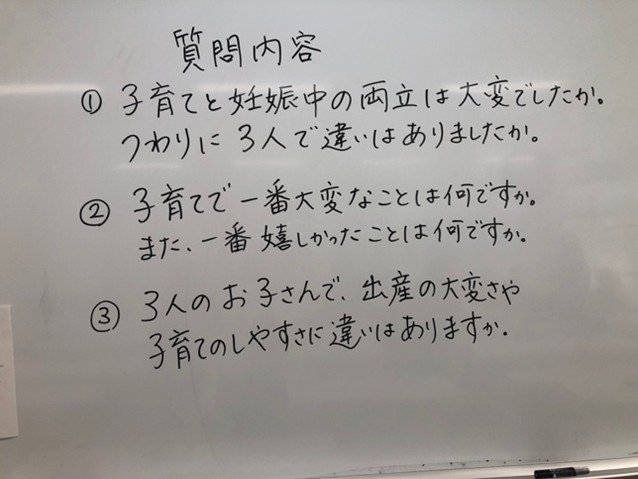 質問内容
① 子育てと妊娠中の両立は大変でしたか。
つわりに3人で違いはありましたか。
② 子育てで一番大変なことは何ですか。
また、一番嬉しかったことは何ですか。
③ 3人のお子さんで、出産の大変さや
子育てのしやすさに違いはありますか。